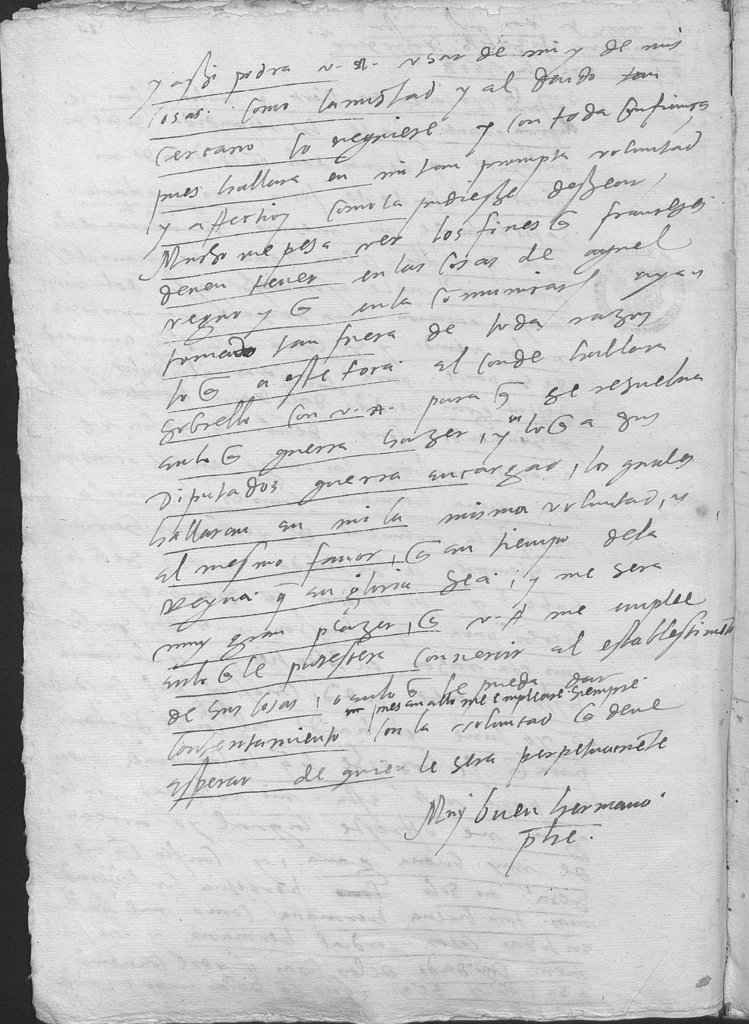 y assi podra v. A. usar de mi y de mis
cosas. Como la amistad y al deudo tan
cercano lo requiere y con toda confiança
pues hallara en mi tan prompta voluntad
y affection como la pudiesse dessear,
Mucho me pesa ver los fines q̃ franceses
deven tener en las cosas de aquel
regno y q̃ en la comunicasⁿ ayan
tomado tan fuera de toda razon
lo q̃ a esto toca. el conde hallara
sobrello con v. A. para q̃ se resuelva
en lo q̃ querra hazer, y en lo q̃ a sus
Diputados querra encargar, los quales
hallaran en mi la misma voluntad, y
el mesmo favor, q̃ en tiempo de la
Reyna. q̃ en gloria sea; y me sera
muy gran plazer, q̃ v. A me emplee
en lo q̃ le paresciera convenir al establescimiᵗᵒ
de sus cosas, o en lo q̃ le pueda dar
pues en ello me empleare siempre.
contentamiento con la voluntad q̃ deve
esperar de quien le sera perpetuamente
Muy buen hermano.
phe.